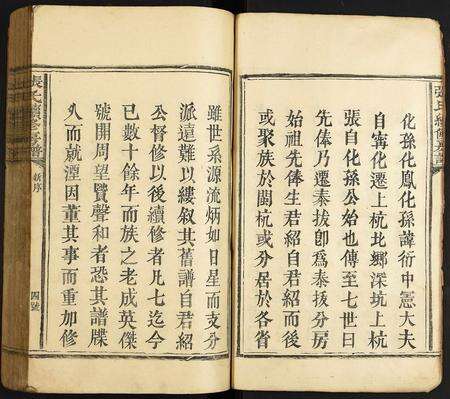 張氏續修族譜
化孫化鳳化孫諱衍中憲大夫
自寗化遷上杭北鄉深坑上杭
張自化孫公始也傳至七世曰
先俸乃遷泰拔卽爲泰拔分房
始祖先俸生君紹自君紹而後
或聚族於閩杭或分居於各省
雖世系源流炳如日星而支分
派遠難以縷叙其舊譜自君紹
公督修以後續修者凡七迄今
已數十餘年而族之老成英傑
號開周望贒聲和者恐其譜牒
久而就湮因董其事而重加修
張氏續修族譜
新序
四號